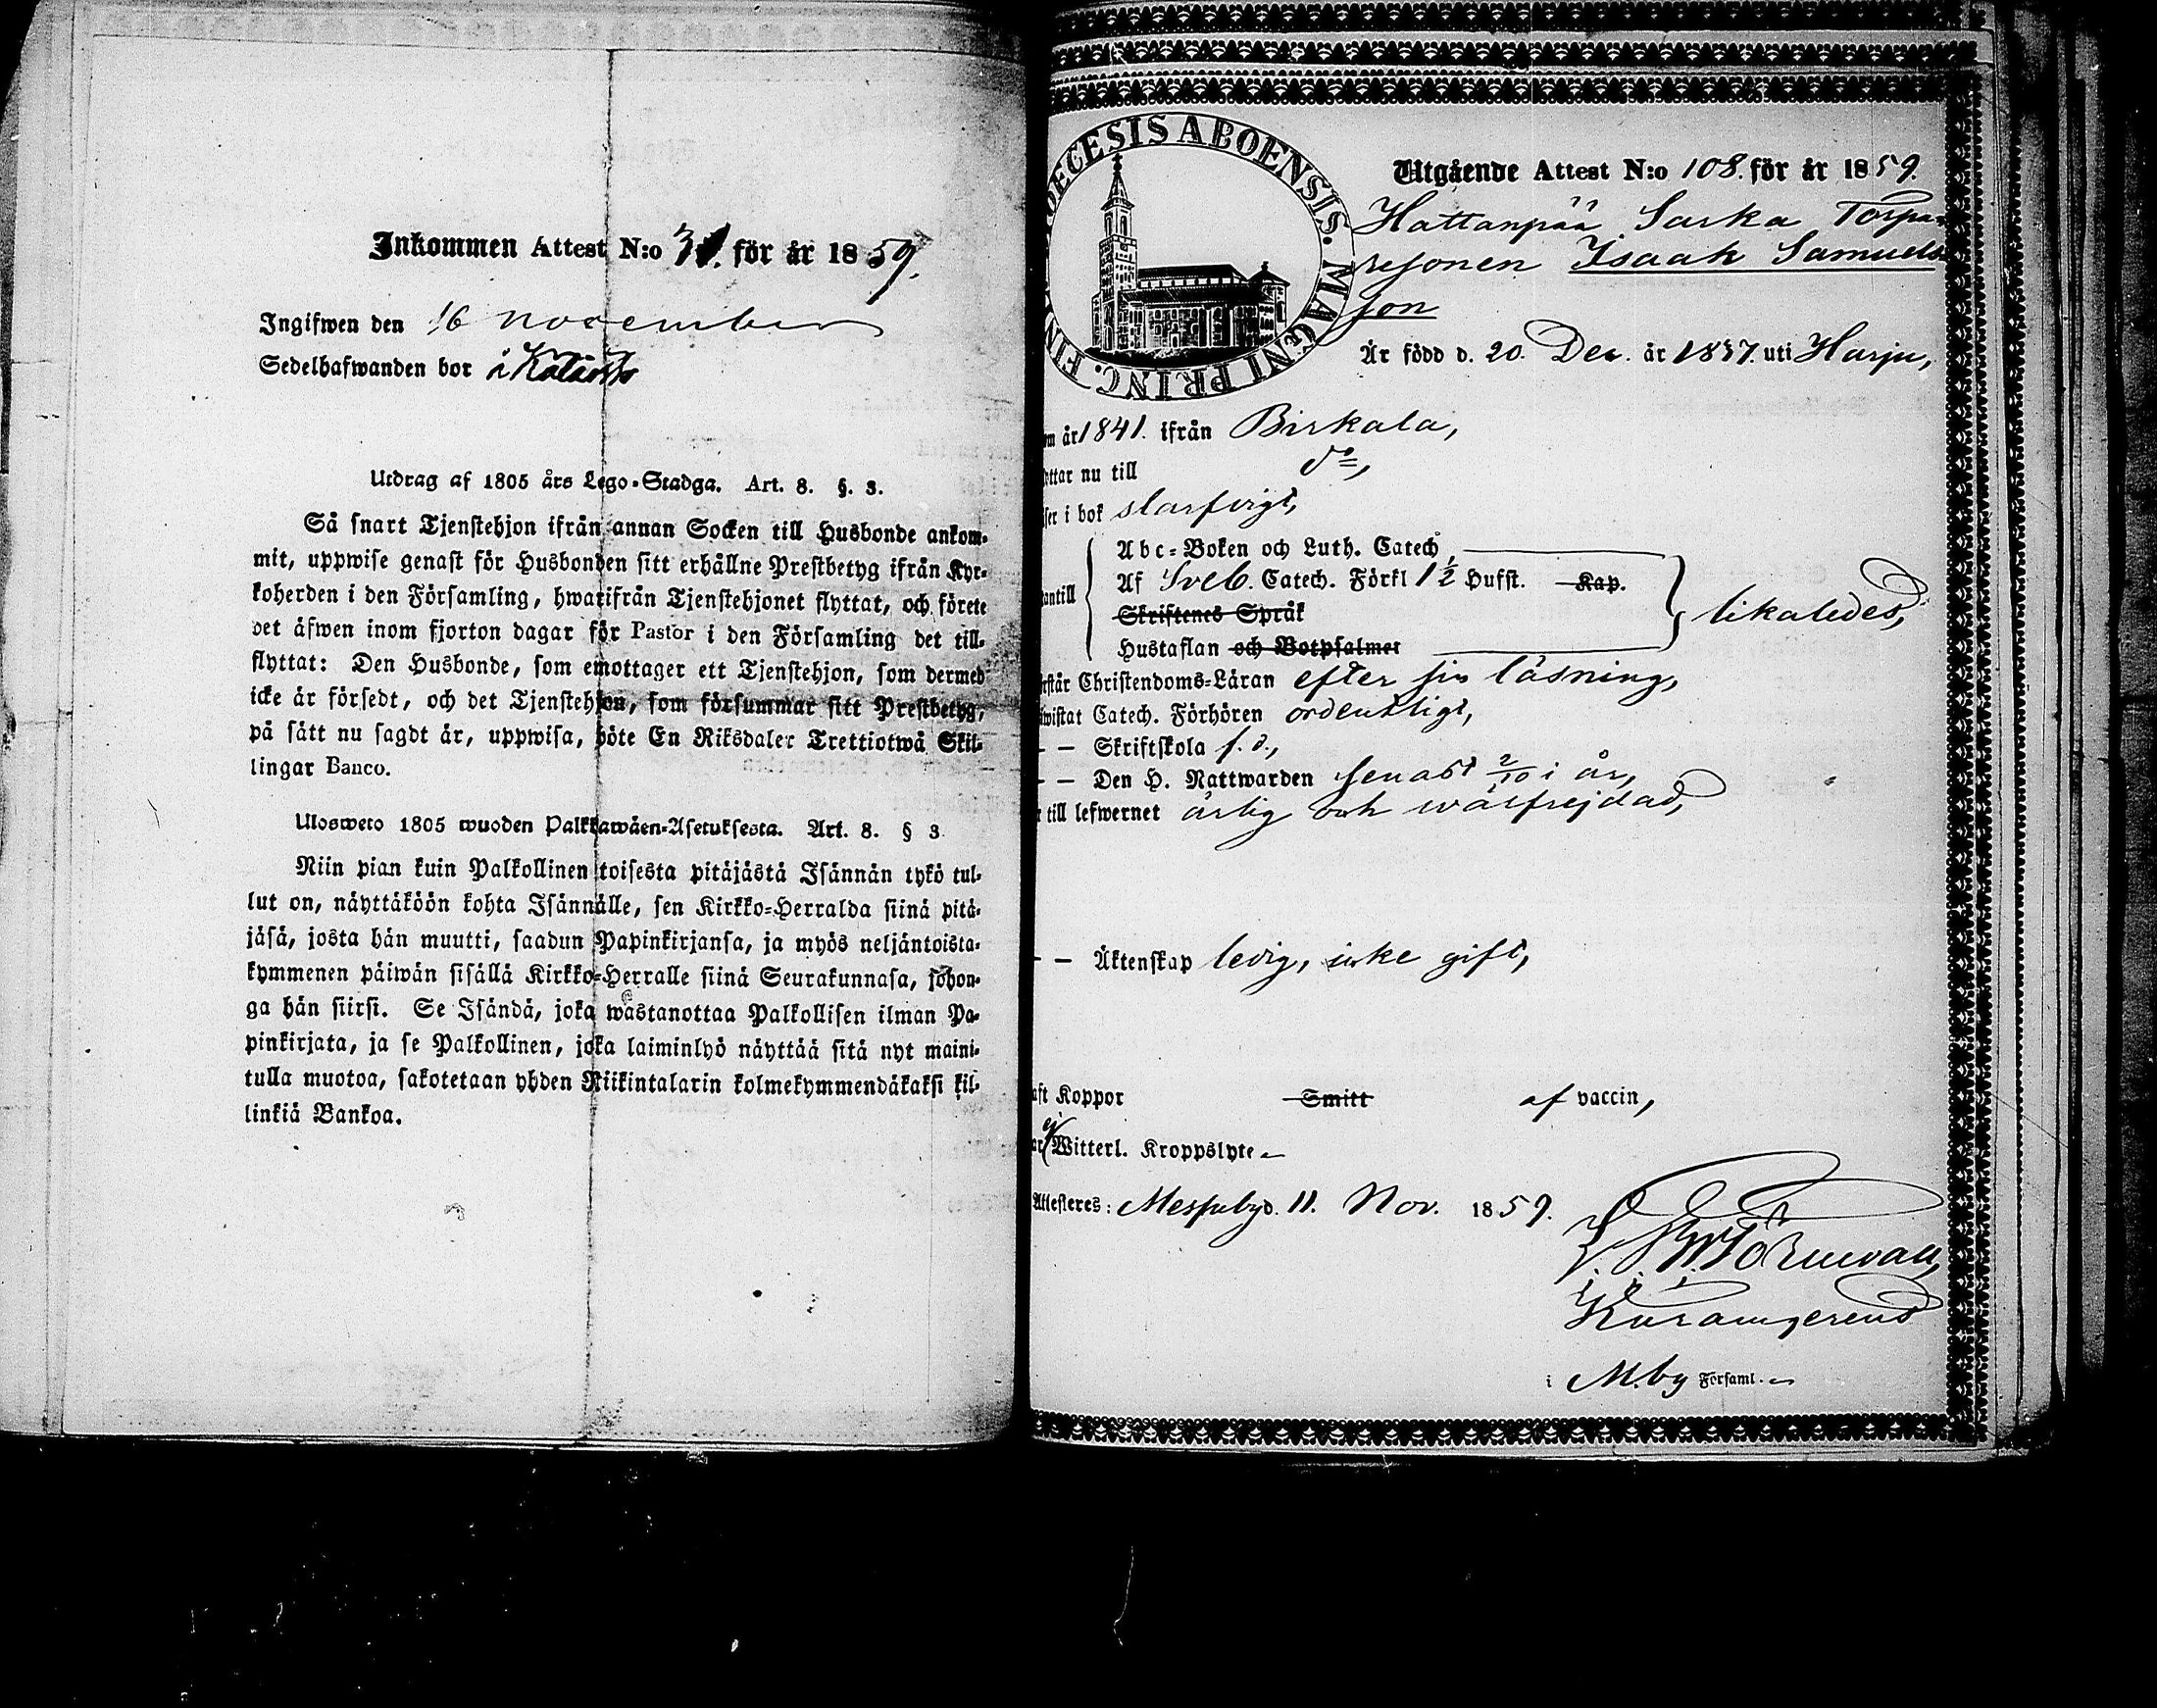 Inkommen Attest N:o för år 1859.
Ingifwen den 16 november
Sedelhafwanden bor i
Utdrag af 1805 års Lego-Stadga. Art. 8. §. 3.
Så snart Tjenstehjon ifrån annan Socken till Husbonde ankom-
mit, uppwise genast för Husbonden sitt erhållne Prestbetyg ifrån Kyr-
koherden i den Församling, hwarifrån Tjenstehjonet flyttat, och förete
det äfwen inom fjorton dagar för Pastor i den Församling det till-
flyttat: Den Husbonde, som emottager ett Tjenstehjon, som dermed
icke är försedt, och det Tjenstehjon, som försummar sitt Prestbetyg,
på sätt nu sagdt är, uppwisa, böte En Riksdaler Trettiotwå Skil-
lingar Banco.
Ulosweto 1805 wuoden Palkkawäen-Asetuksesta. Art. 8. § 3
Niin pian kuin Palkollinen toisesta pitäjästä Isännän tykö tul-
lut on, näyttäköön kohta Isännälle, sen Kirkko-Herralda siinä pitä-
jäsä, josta hän muutti, saadun Papinkirjansa, ja myös neljäntoista-
kymmenen päiwän sisällä Kirkko-Herralle siinä Seurakunnasa, johon-
ga hän siirsi. Se Isändä, joka wastanottaa Palkollisen ilman Pa-
pinkirjata, ja se Palkollinen, joka laiminlyö näyttää sitä nyt maini-
tulla muotoa, sakotetaan yhden Riikintalarin kolmekymmendäkaksi kil-
linkiä Bankoa.
DIOECESIS ABOENSIS. MAGNI PRINC. FINL.
Utgående Attest N:o 108. för år 1859.
Hattanpää Sarka Torpa-
resonen Isaak Samuels-
son
Är född d. 20. Dec. år 1837. uti Harju,
om år 1841. ifrån Birkala,
yttar nu till do,
äser i bok slarfvigt,
Abc-Boken och Luth. Catech,
antill Af Sveb. Catech. Förkl 1½ Hufst. Kap.
Skriftenes Språk
likaledes,
Hustaflan och Botpsalmer
rstår Christendoms-Läran efter sin läsning,
iwistat Catech. Förhören ordentligt,
- - Skriftskola f. d.,
- - Den H. Nattwarden senast 2/10 i år,
r till lefwernet ärlig och wälfrejdad,
- - Äktenskap ledig, icke gift,
aft Koppor Smitt af vaccin,
ar ej Witterl. Kroppslyte
Attesteres: Messuby d. 11. Nov. 1859.
Törnwall,
i M.by Församl.